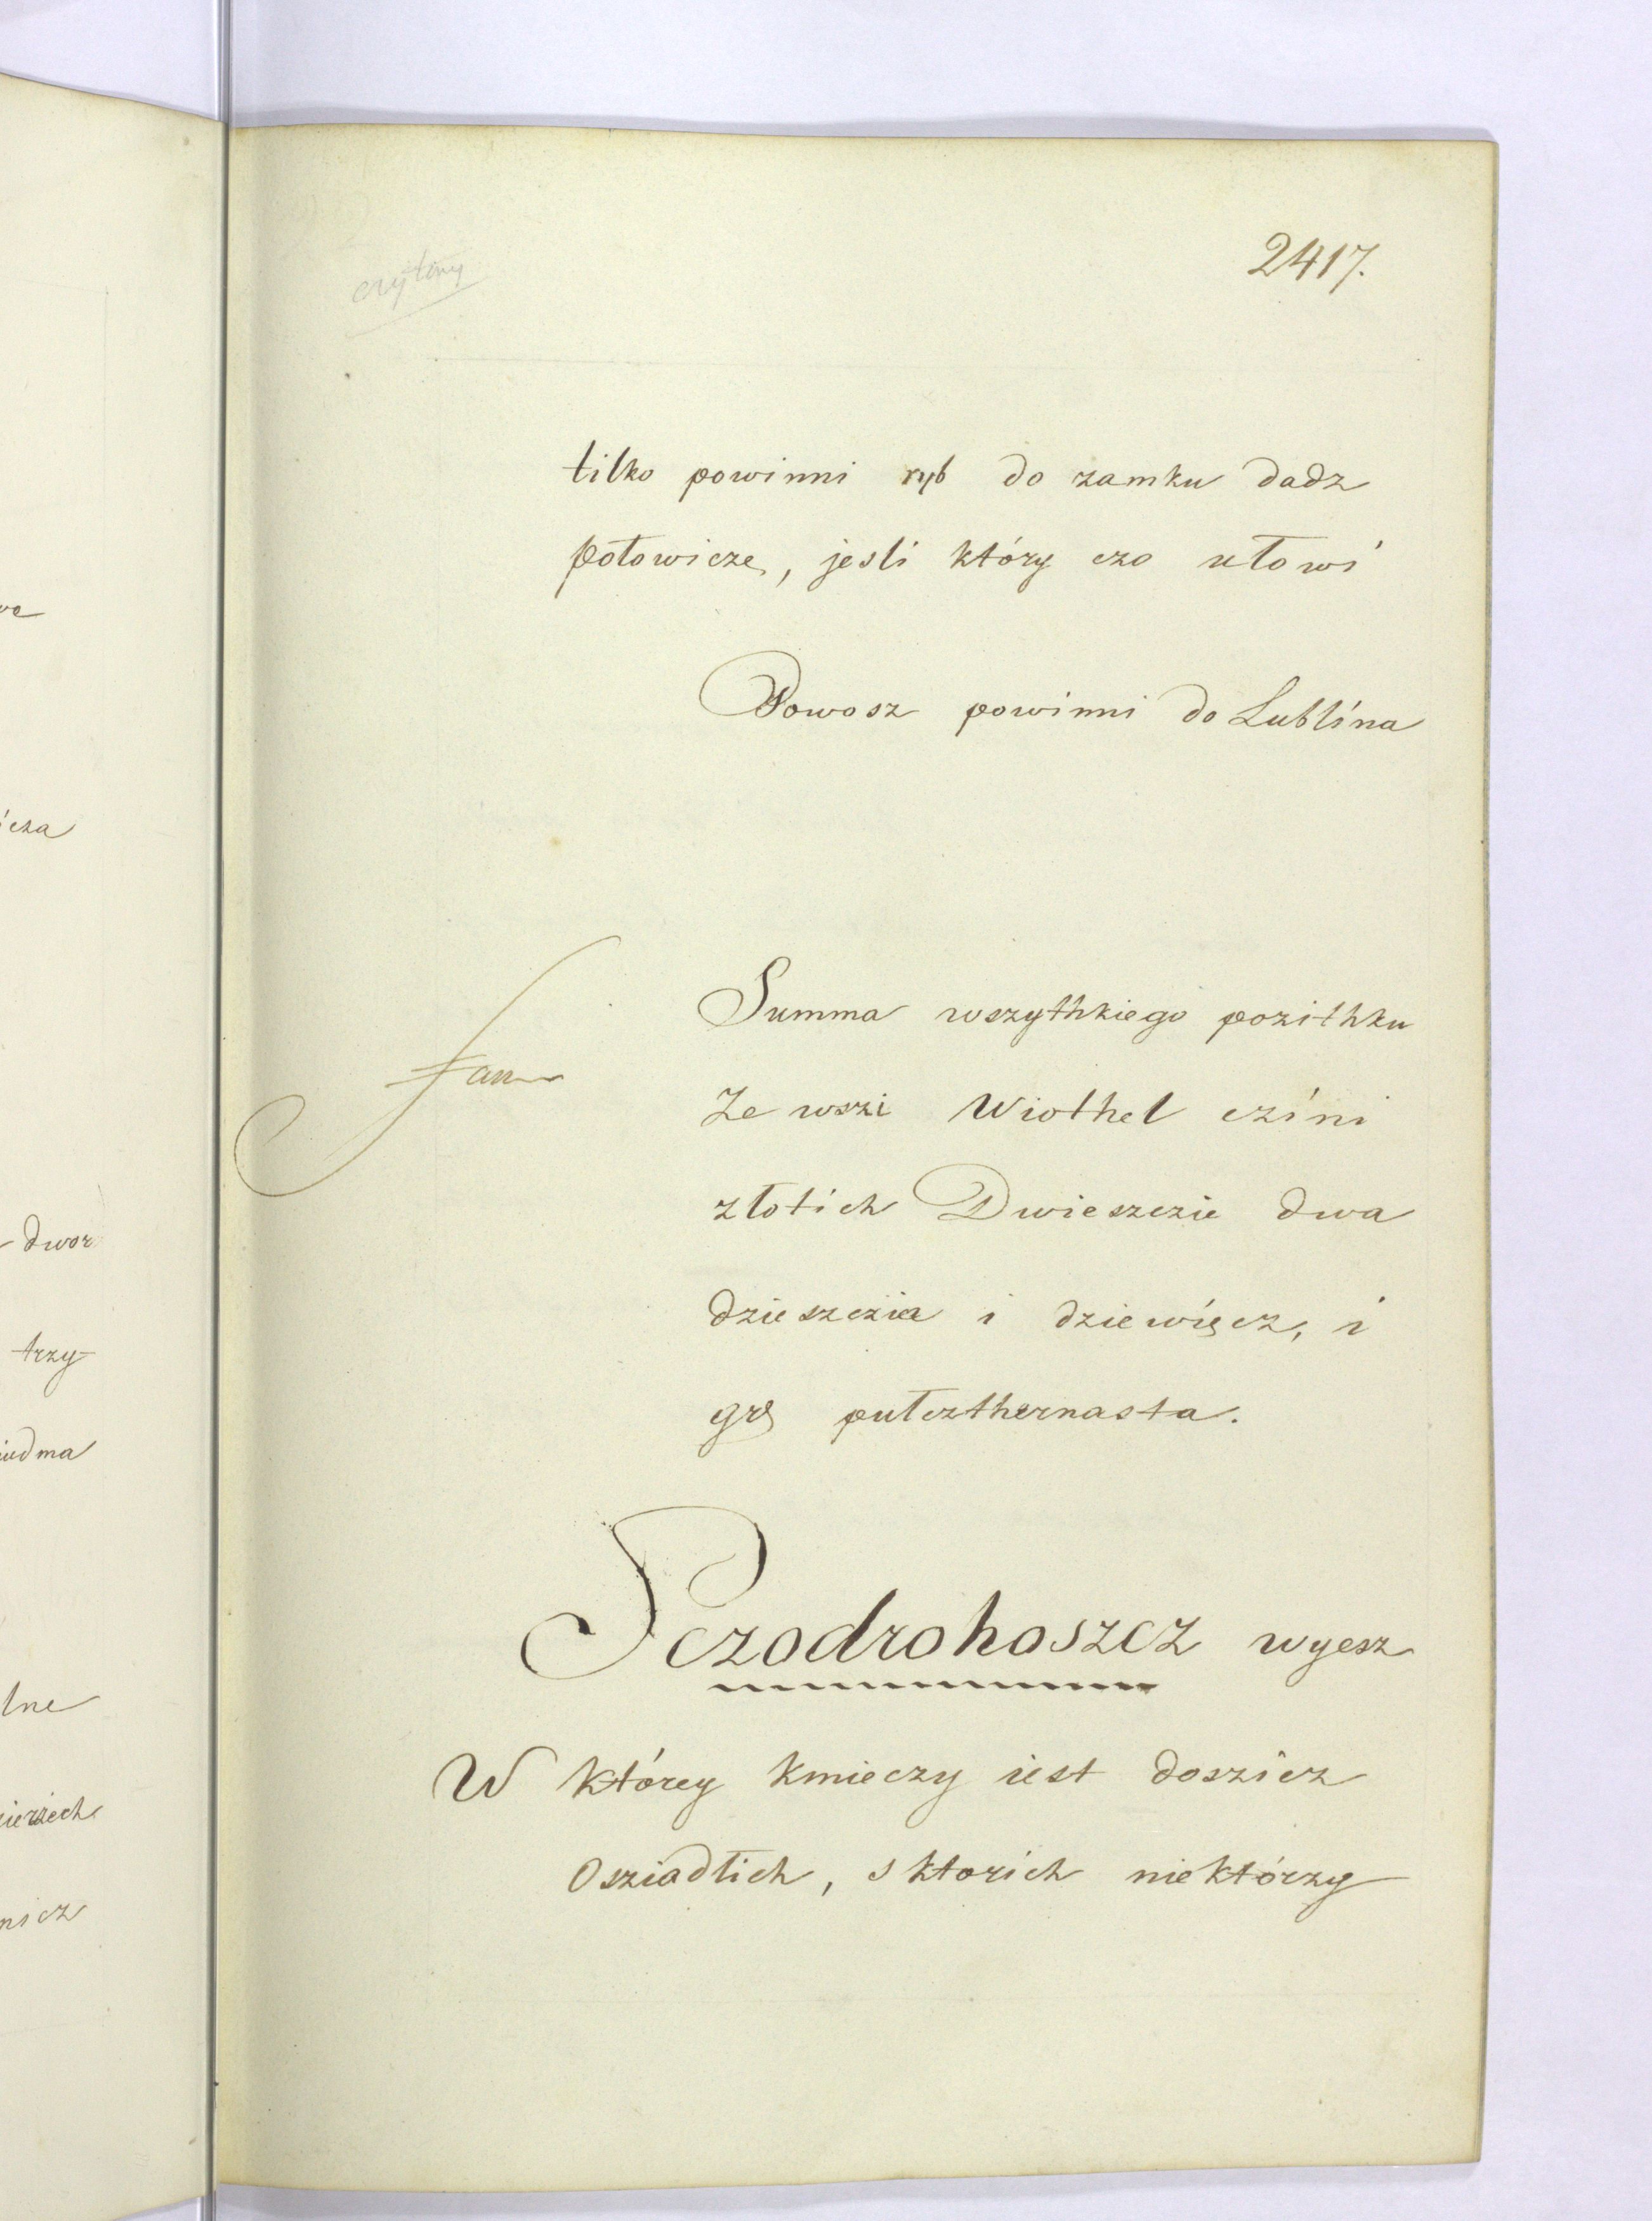 2417.
tilko powinni ryb do zamku dadz
połowicze, jesli który czo ułowi
Powosz powinni do Lublina
Summa wszythkiego pozithku
Ze wszi Wiothel czini
złotich Dwieszczie dwa
dzieszczia i dziewięcz, i
grs pułczthernasta.
Sczodrohoszcz wyesz
W którey kmieczy iest doszicz
Osziadłich, s ktorich niektórzy
ve
icza
dwor
trzy
iudma
lne
nicz